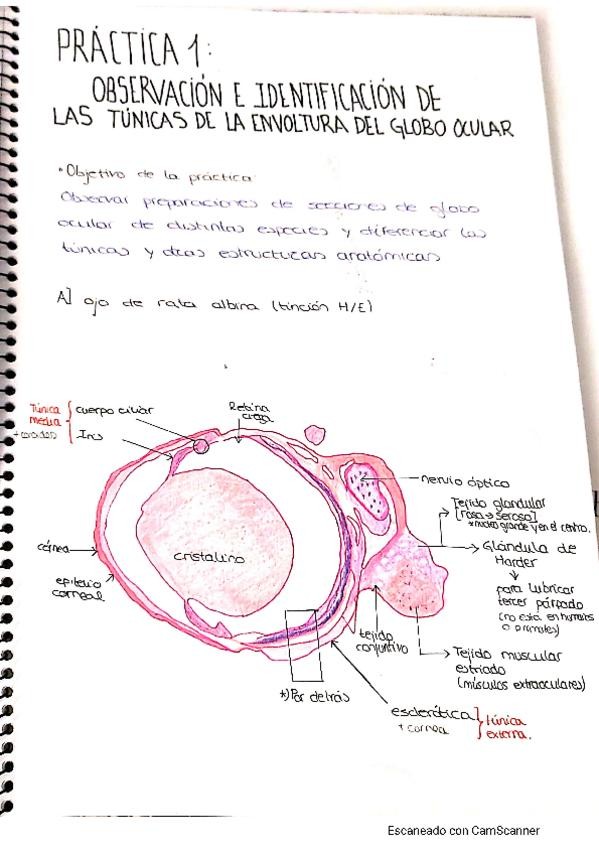 PRÁCTICA 1:
OBSERVACIÓN E IDENTIFICACIÓN DE
LAS TÚNICAS DE LA ENVOLTURA DEL GLOBO OCULAR
• Objetivo de la práctica
Observar preparaciones de secciones de globo
ocular de distintas especies y diferenciar las
túnicas y otras estructuras anatómicas
A] ojo de rata albina (tinción H/E)
Túnica
media
+ coroides
cuerpo ciliar
Iris
Retina
ciega
nervio óptico
Tejido glandular
[rosa → seroso]
*núcleo grande y en el centro.
Glándula de
Harder
para lubricar
tercer párpado
(no está en humanos
o primates)
córnea
epitelio
corneal
cristalino
tejido
conjuntivo
Tejido muscular
estriado
(músculos extraoculares)
*) Por detrás
esclerótica
+ córnea
túnica
externa.
Escaneado con CamScanner